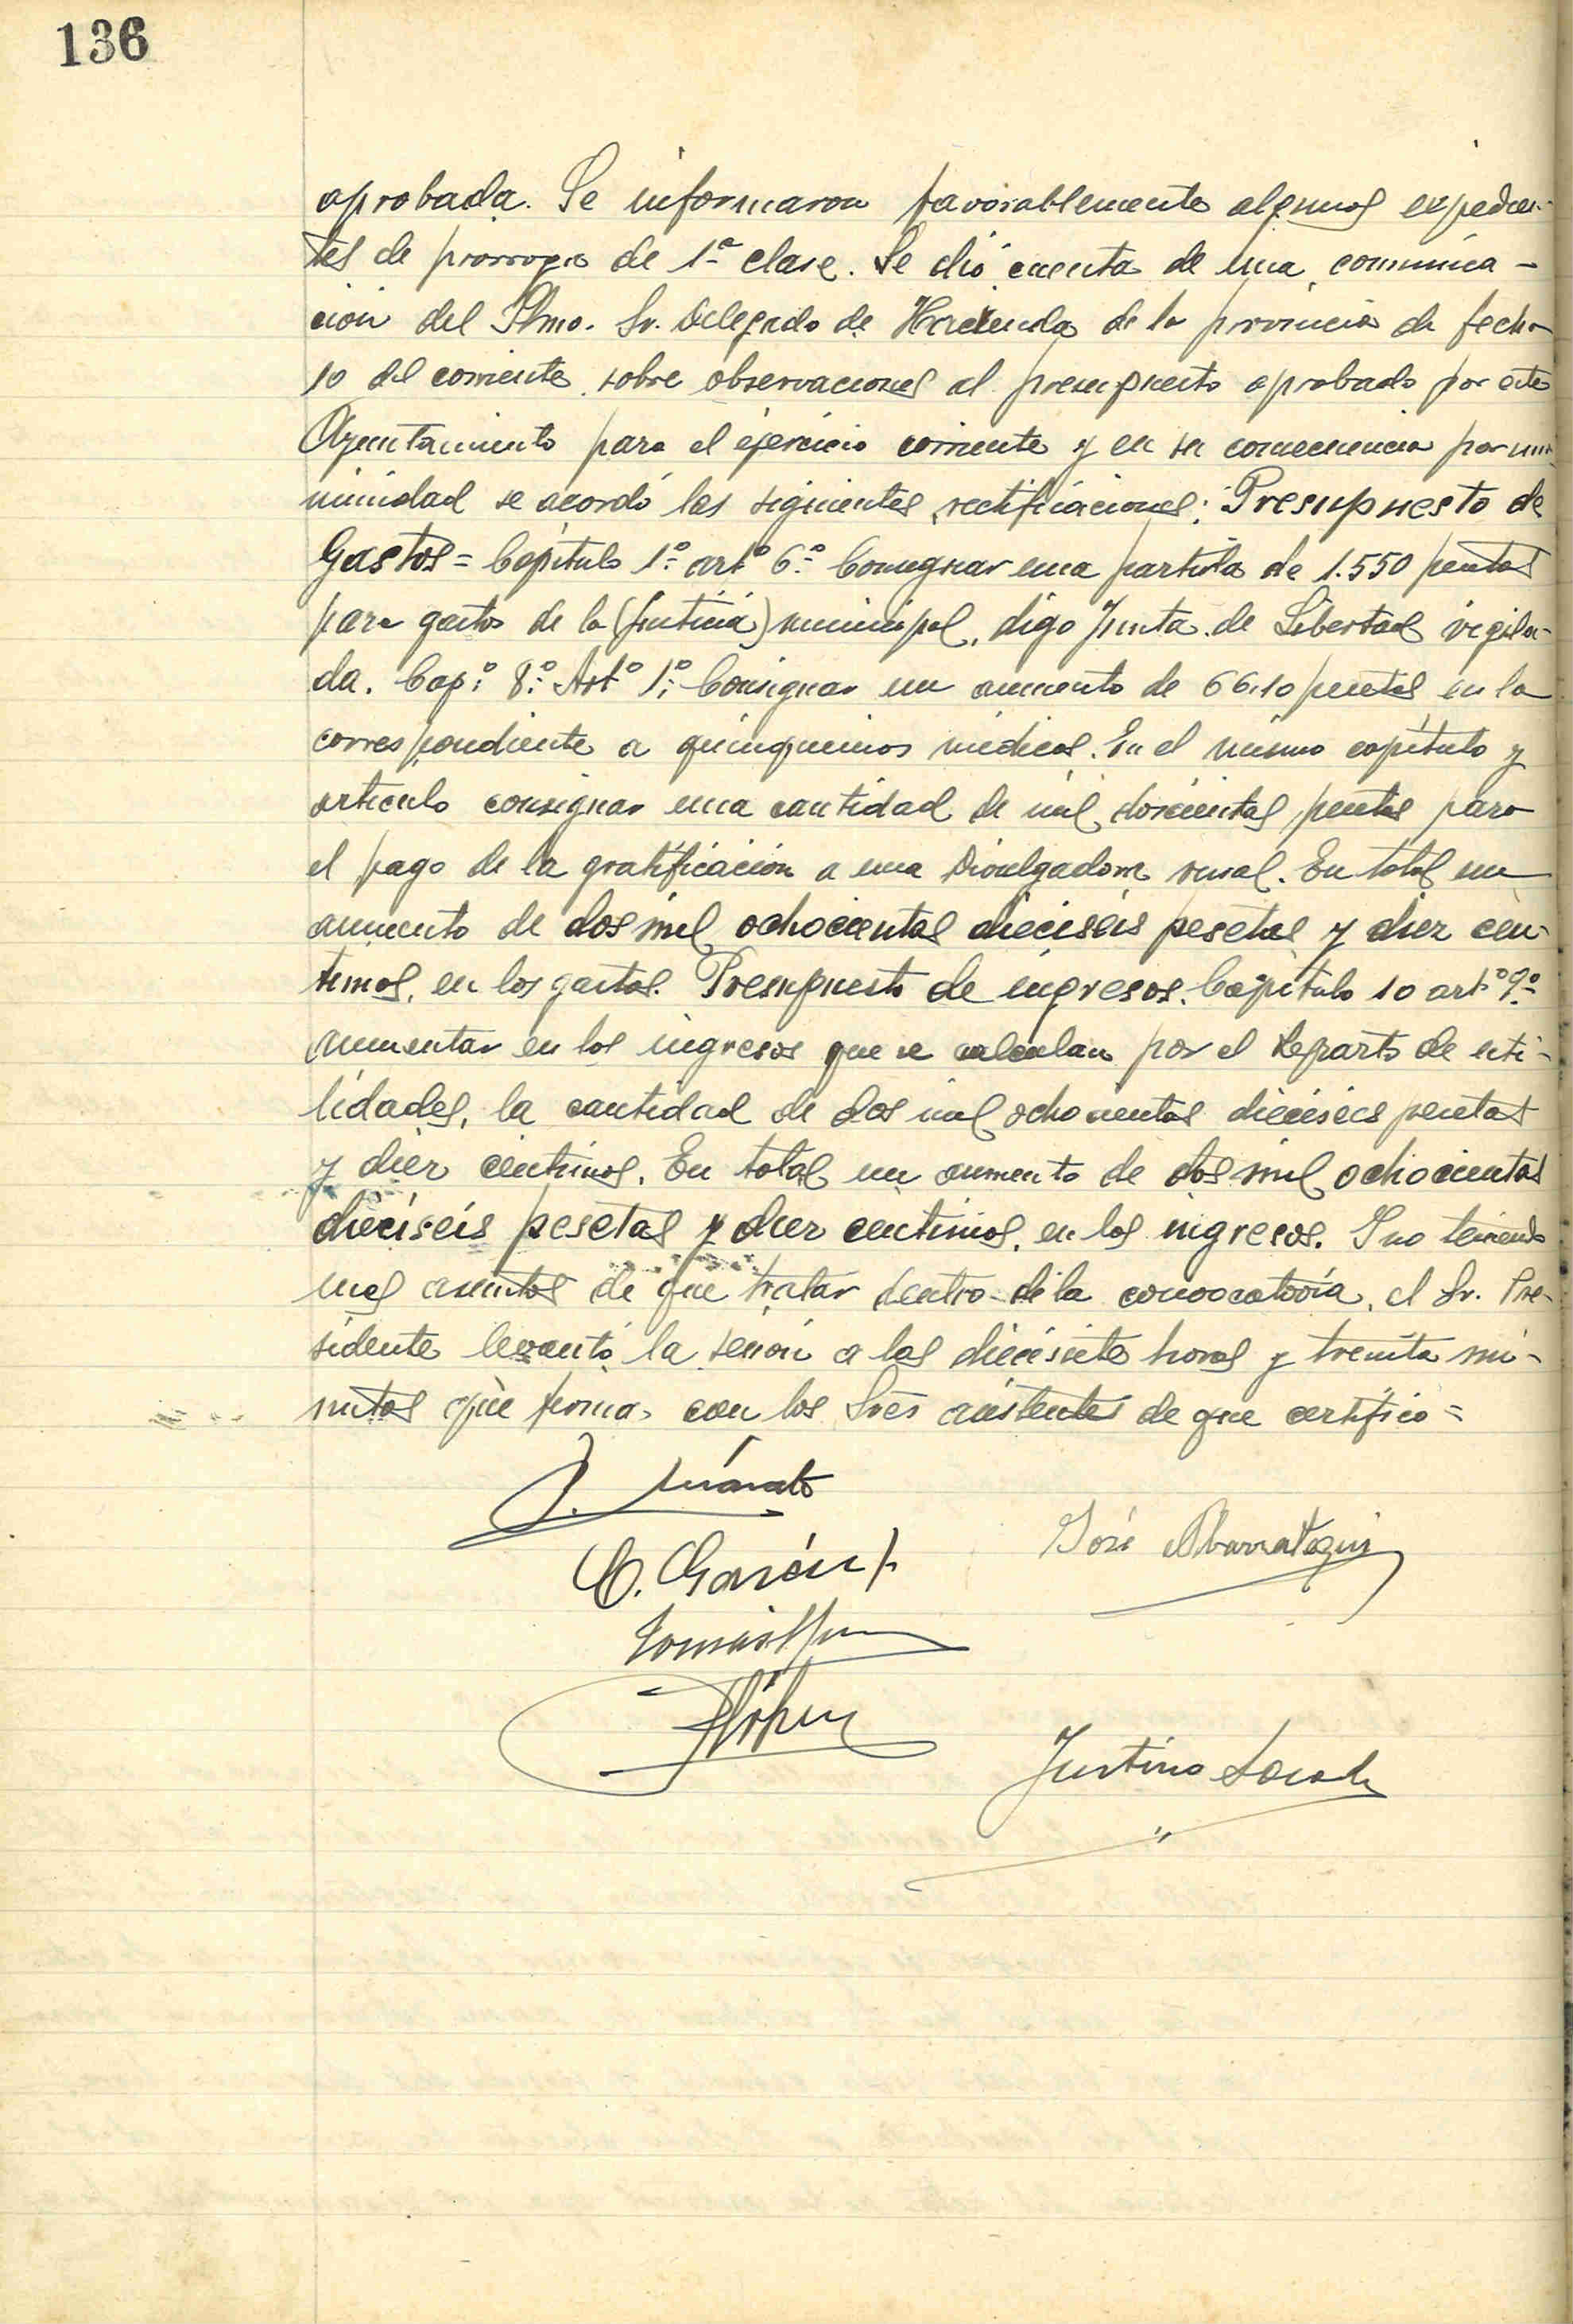 136
aprobada. Se informaron favorablemente algunos expedien-
tes de prorroga de 1ª clase. Se dió cuenta de una comunica-
ción del Ilmo. Sr. Delegado de Hacienda de la provincia de fecha
10 del corriente sobre observaciones al presupuesto aprobado por este
Ayuntamiento para el ejercicio corriente y en su consecuencia por una-
nimidad se acordó las siguientes rectificaciones: Presupuesto de
Gastos = Capítulo 1º artº 6º Consignar una partida de 1.550 pesetas
para gastos de la (Justicia) municipal, digo Junta de Libertad vigila-
da. Capº 8º Artº 1º Consignar un aumento de 66,10 pesetas en la
correspondiente a quinquenios médicos. En el mismo capítulo y
artículo consignar una cantidad de mil doscientas pesetas para
el pago de la gratificación a una Divulgadora rural. En total un
aumento de dos mil ochocientas dieciséis pesetas y diez cén-
timos, en los gastos. Presupuesto de ingresos. Capítulo 10 artº 9º
aumentar en los ingresos que se calculan por el Reparto de uti-
lidades, la cantidad de dos mil ochocientas dieciséis pesetas
y diez céntimos. En total un aumento de dos mil ochocientas
dieciséis pesetas y diez centimos, en los ingresos. Y no teniendo
mas asuntos de que tratar dentro de la convocatoria, el Sr. Pre-
sidente levantó la sesión a las diecisiete horas y treinta mi-
nutos que firma con los Sres asistentes de que certifico =
José Abarrategui
Justino